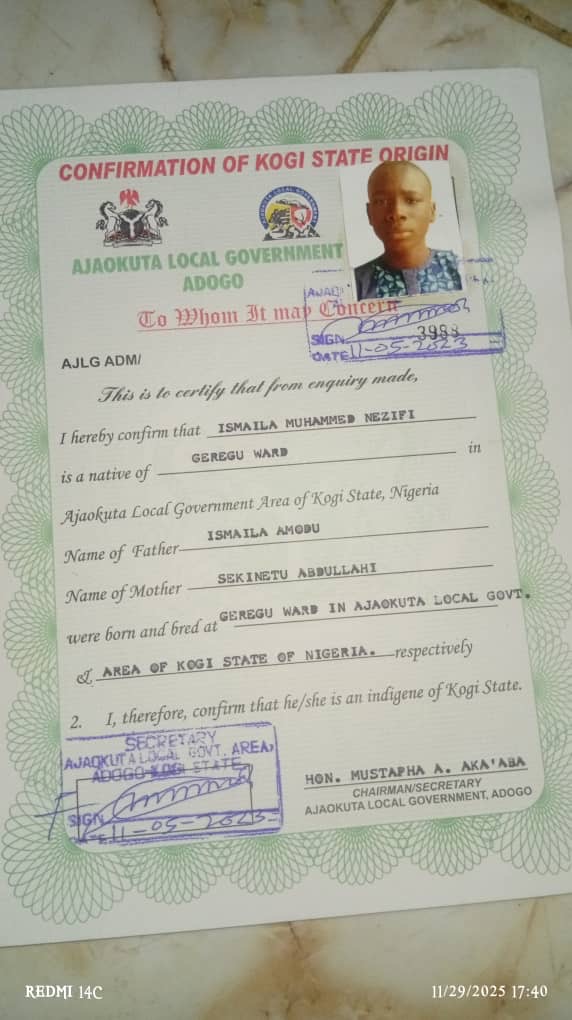 CONFIRMATION OF KOGI STATE ORIGIN
AJAOKUTA LOCAL GOVERNMENT
ADOGO
To Whom It may Concern
SIGN
3988
DATE 11-05-2023
AJLG ADM/
This is to certify that from enquiry made,
I hereby confirm that ISMAILA MUHAMMED NEZIFI
is a native of GEREGU WARD in
Ajaokuta Local Government Area of Kogi State, Nigeria
Name of Father ISMAILA AMODU
Name of Mother SEKINETU ABDULLAHI
were born and bred at GEREGU WARD IN AJAOKUTA LOCAL GOVT.
& AREA OF KOGI STATE OF NIGERIA. respectively
2. I, therefore, confirm that he/she is an indigene of Kogi State.
SECRETARY
AJAOKUTA LOCAL GOVT. AREA,
ADOGO KOGI STATE
SIGN
11-05-2023
HON. MUSTAPHA A. AKA'ABA
CHAIRMAN/SECRETARY
AJAOKUTA LOCAL GOVERNMENT, ADOGO
REDMI 14C
11/29/2025 17:40